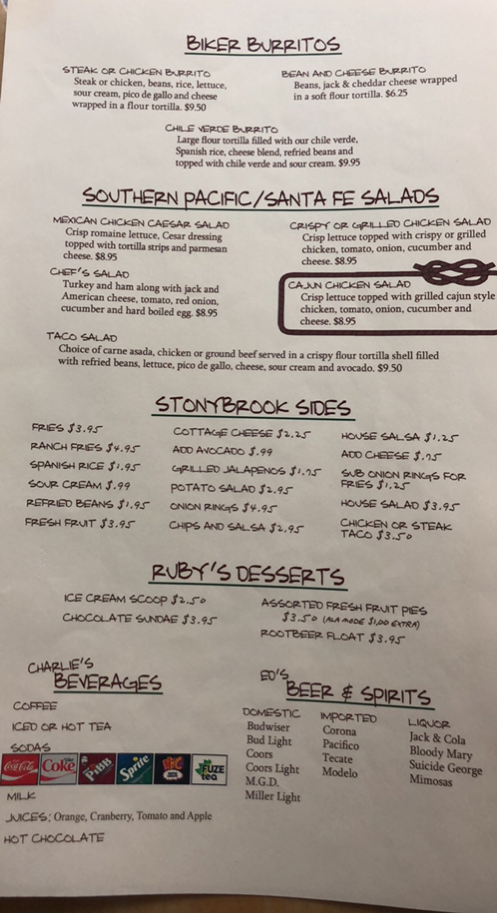 BIKER BURRITOS
STEAK OR CHICKEN BURRITO
Steak or chicken, beans, rice, lettuce,
sour cream, pico de gallo and cheese
wrapped in a flour tortilla. $9.50
BEAN AND CHEESE BURRITO
Beans, jack & cheddar cheese wrapped
in a soft flour tortilla. $6.25
CHILE VERDE BURRITO
Large flour tortilla filled with our chile verde,
Spanish rice, cheese blend, refried beans and
topped with chile verde and sour cream. $9.95
SOUTHERN PACIFIC/SANTA FE SALADS
MEXICAN CHICKEN CAESAR SALAD
Crisp romaine lettuce, Cesar dressing
topped with tortilla strips and parmesan
cheese. $8.95
CRISPY OR GRILLED CHICKEN SALAD
Crisp lettuce topped with crispy or grilled
chicken, tomato, onion, cucumber and
cheese. $8.95
CHEF'S SALAD
Turkey and ham along with jack and
American cheese, tomato, red onion,
cucumber and hard boiled egg. $8.95
CAJUN CHICKEN SALAD
Crisp lettuce topped with grilled cajun style
chicken, tomato, onion, cucumber and
cheese. $8.95
TACO SALAD
Choice of carne asada, chicken or ground beef served in a crispy flour tortilla shell filled
with refried beans, lettuce, pico de gallo, cheese, sour cream and avocado. $9.50
STONYBROOK SIDES
FRIES $3.95
RANCH FRIES $4.95
SPANISH RICE $1.95
SOUR CREAM $.99
REFRIED BEANS $1.95
FRESH FRUIT $3.95
COTTAGE CHEESE $2.25
ADD AVOCADO $.99
GRILLED JALAPENOS $1.75
POTATO SALAD $2.95
ONION RINGS $4.95
CHIPS AND SALSA $2.95
HOUSE SALSA $1.25
ADD CHEESE $.75
SUB ONION RINGS FOR
FRIES $1.25
HOUSE SALAD $3.95
CHICKEN OR STEAK
TACO $3.50
RUBY'S DESSERTS
ICE CREAM SCOOP $2.50
CHOCOLATE SUNDAE $3.95
ASSORTED FRESH FRUIT PIES
$3.50 (ALA MODE $1.00 EXTRA)
ROOTBEER FLOAT $3.95
CHARLIE'S
BEVERAGES
COFFEE
ICED OR HOT TEA
SODAS
Coca-Cola Coke PIBB Sprite FUZE tea
MILK
JUICES: Orange, Cranberry, Tomato and Apple
HOT CHOCOLATE
ED'S
BEER & SPIRITS
DOMESTIC
Budwiser
Bud Light
Coors
Coors Light
M.G.D.
Miller Light
IMPORTED
Corona
Pacifico
Tecate
Modelo
LIQUOR
Jack & Cola
Bloody Mary
Suicide George
Mimosas